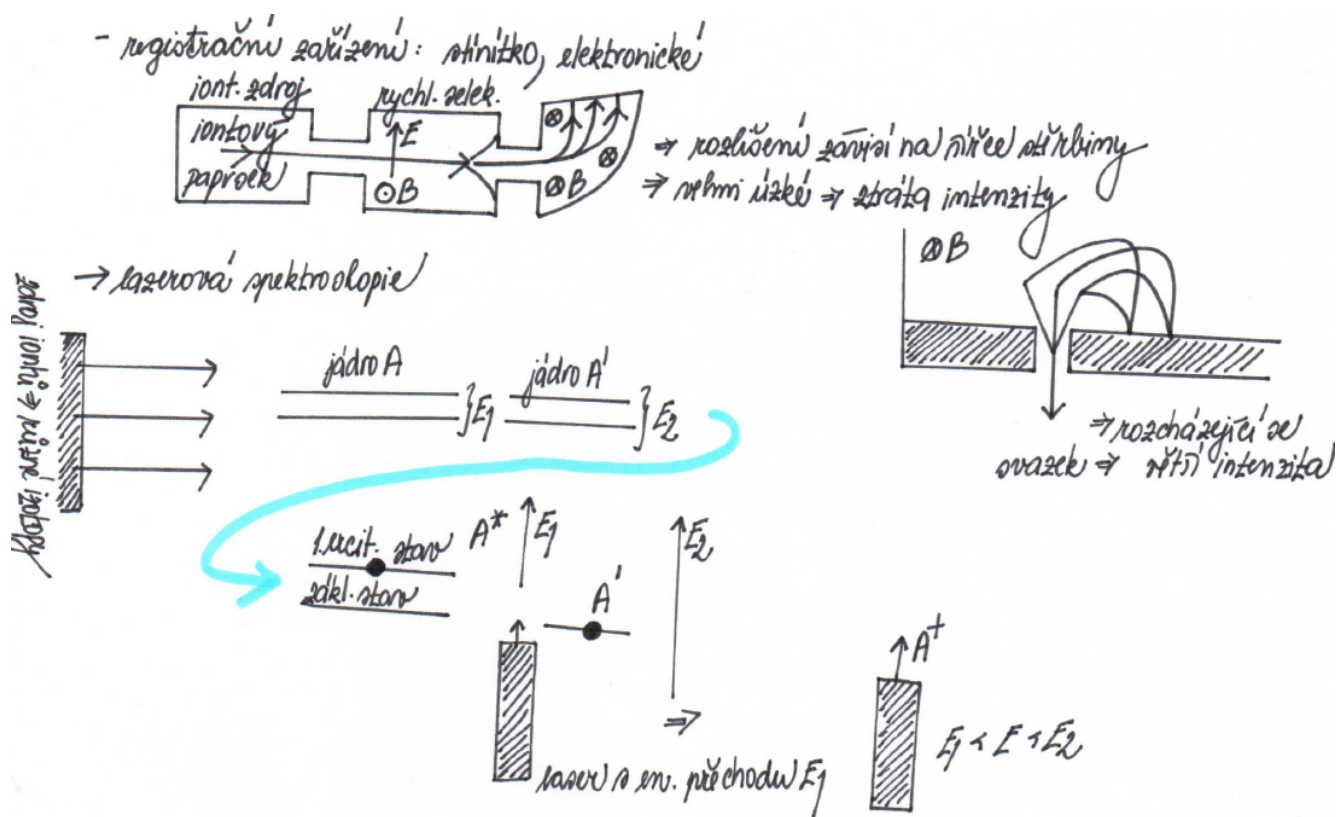 - registrační zařízení: stínítko, elektronické
iont. zdroj
rychl. selek.
iontový
paprsek
E
⊙B
⊗
⊗
⊗B
⇒ rozlišení závisí na šířce štěrbiny
⇒ velmi úzké ⇒ ztráta intenzity
⊗B
⇒ rozcházející se
svazek ⇒ větší intenzita
→ lazerová spektroskopie
zdroj iontů ⇒ různé izotopy
jádro A
}E₁
jádro A'
}E₂
1. excit. stav
zákl. stav
A*
E₁
A'
E₂
⇒
laser s en. přechodu E₁
A⁺
E₁ < E < E₂